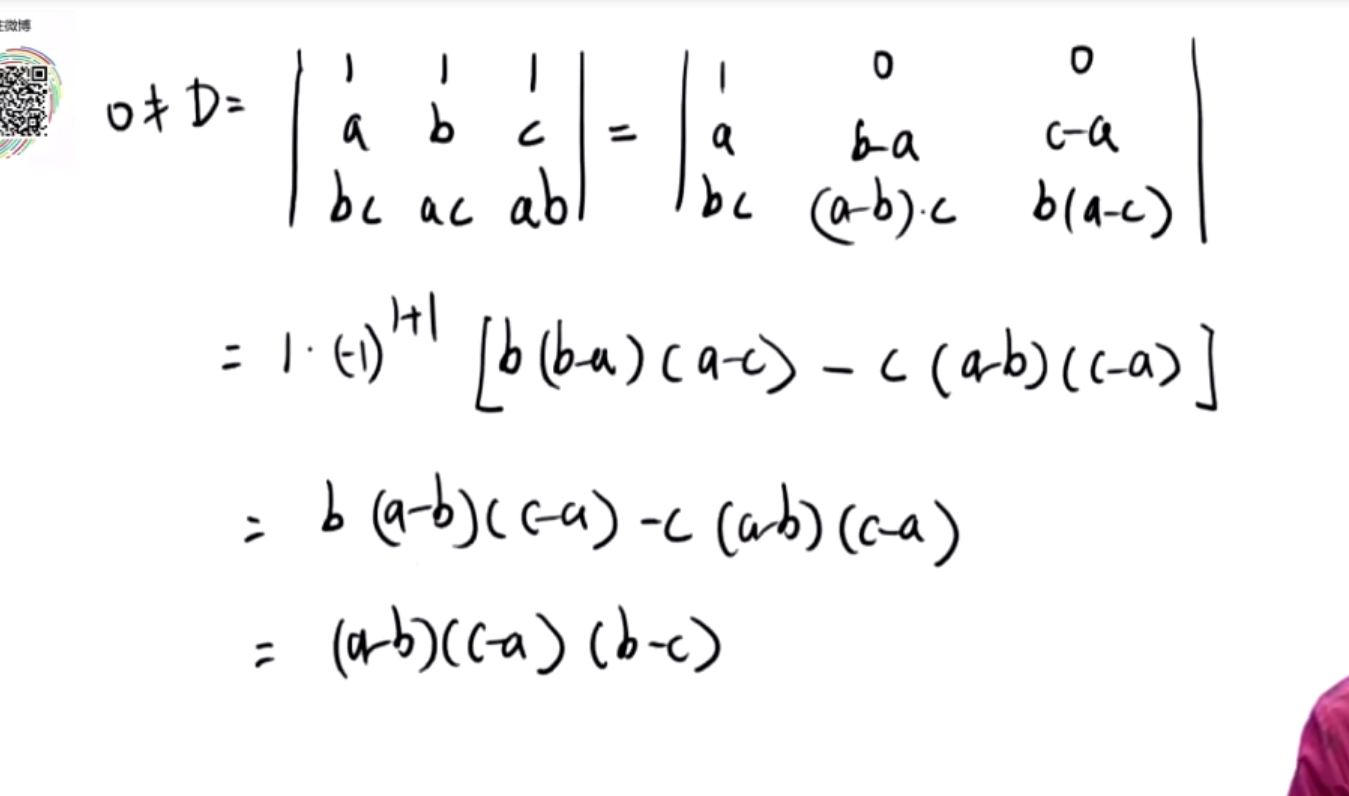 主微博
0 ≠ D = | 1 1 1 | = | 1 0 0 |
| a b c | | a b-a c-a |
| bc ac ab | | bc (a-b)·c b(a-c) |
= 1·(-1)^{1+1} [b(b-a)(a-c) - c(a-b)(c-a)]
= b(a-b)(c-a) - c(a-b)(c-a)
= (a-b)(c-a)(b-c)